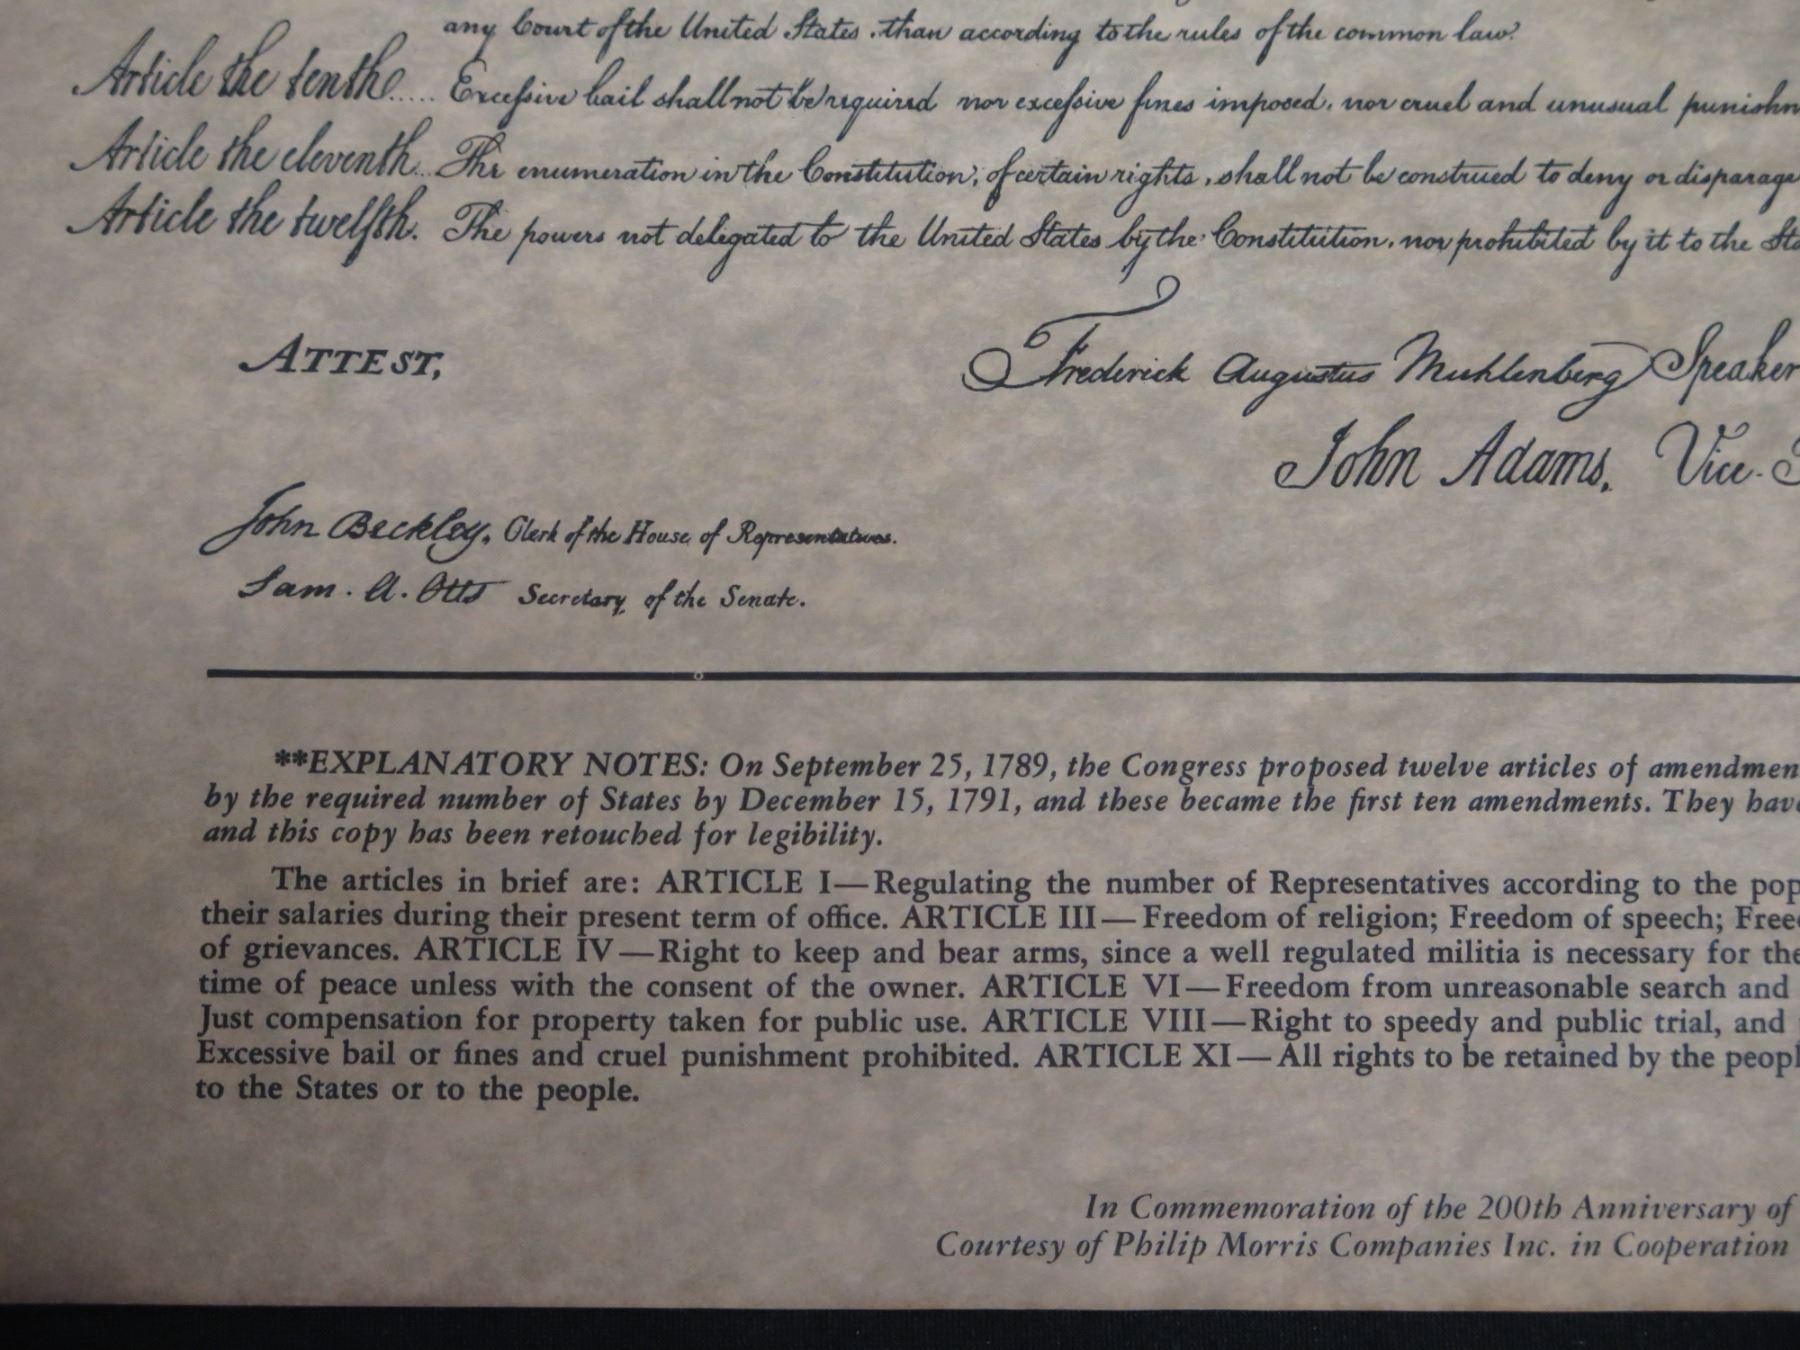 any Court of the United States, than according to the rules of the common law.
Article the tenth..... Excessive bail shall not be required nor excessive fines imposed, nor cruel and unusual punishm
Article the eleventh... The enumeration in the Constitution, of certain rights, shall not be construed to deny or disparage
Article the twelfth. The powers not delegated to the United States by the Constitution, nor prohibited by it to the Sta
ATTEST,
Frederick Augustus Muhlenberg Speaker
John Adams, Vice-
John Beckley, Clerk of the House of Representatives.
Sam. A. Otis Secretary of the Senate.
**EXPLANATORY NOTES: On September 25, 1789, the Congress proposed twelve articles of amendmen
by the required number of States by December 15, 1791, and these became the first ten amendments. They have
and this copy has been retouched for legibility.
The articles in brief are: ARTICLE I—Regulating the number of Representatives according to the pop
their salaries during their present term of office. ARTICLE III—Freedom of religion; Freedom of speech; Freed
of grievances. ARTICLE IV—Right to keep and bear arms, since a well regulated militia is necessary for the
time of peace unless with the consent of the owner. ARTICLE VI—Freedom from unreasonable search and
Just compensation for property taken for public use. ARTICLE VIII—Right to speedy and public trial, and
Excessive bail or fines and cruel punishment prohibited. ARTICLE XI—All rights to be retained by the peopl
to the States or to the people.
In Commemoration of the 200th Anniversary of
Courtesy of Philip Morris Companies Inc. in Cooperation